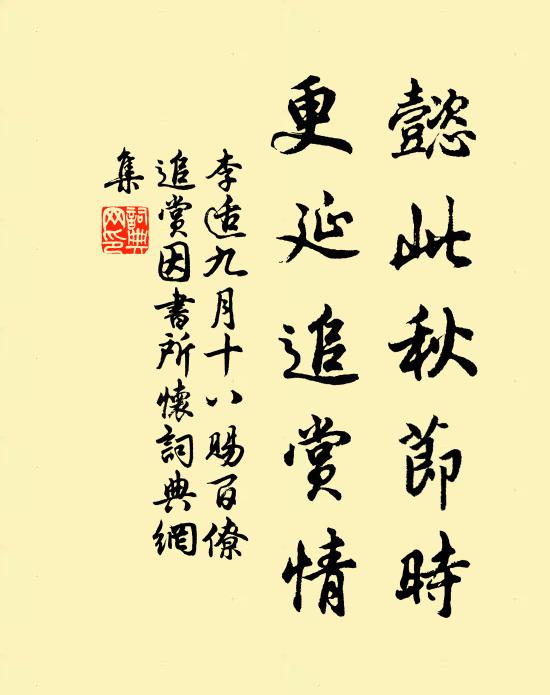 懿此秋節時
更延追賞情
李适九月十八賜百僚
追賞因書所懷詞典網
集
詞典
网印